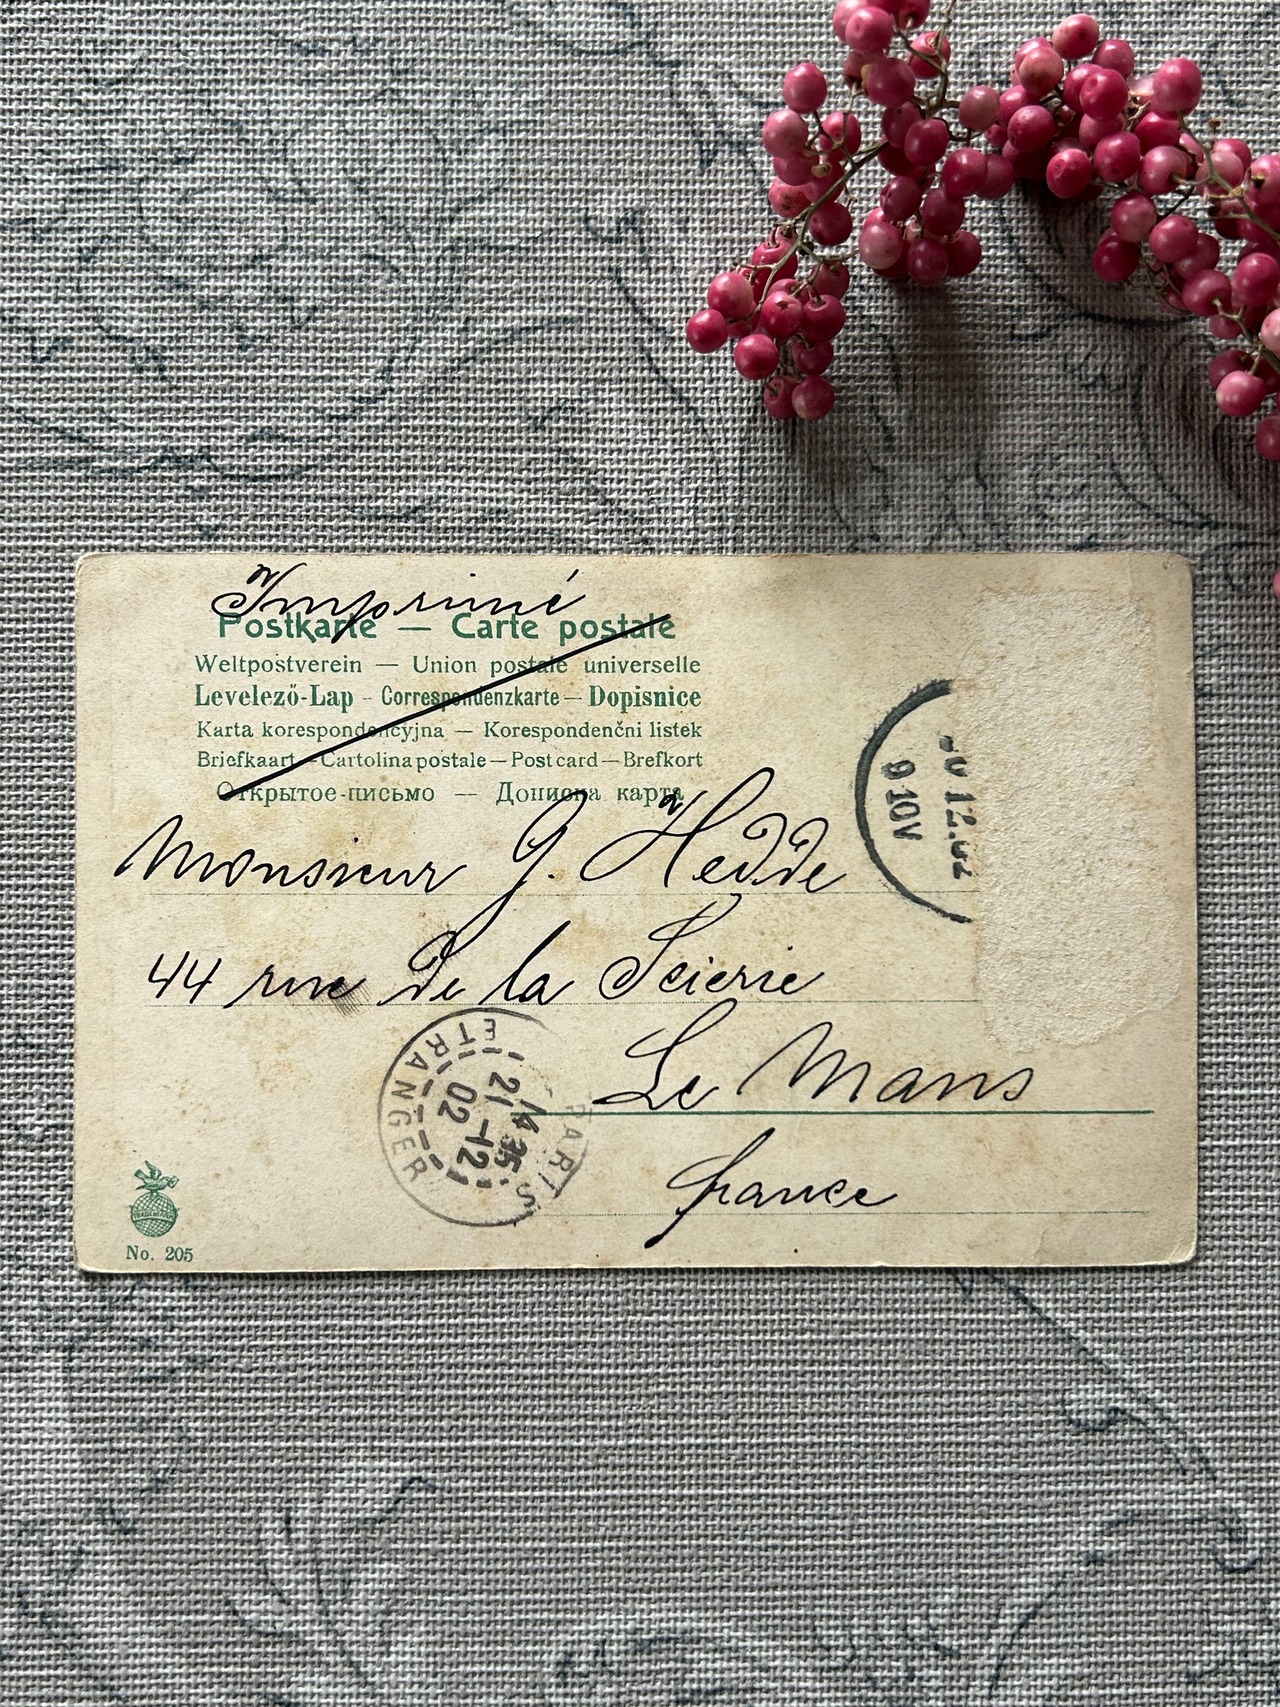 Imprimé
Postkarte — Carte postale
Weltpostverein — Union postale universelle
Levelező-Lap - Correspondenzkarte — Dopisnice
Karta korespondencyjna — Korespondenčni listek
Briefkaart — Cartolina postale — Post card — Brefkort
Открытое-письмо — Дописна карта
Monsieur G. Hedde
44 rue de la Scierie
Le Mans
france
PARIS
ETRANGER
14 35
21 -12
02
12.02
9 10V
No. 205